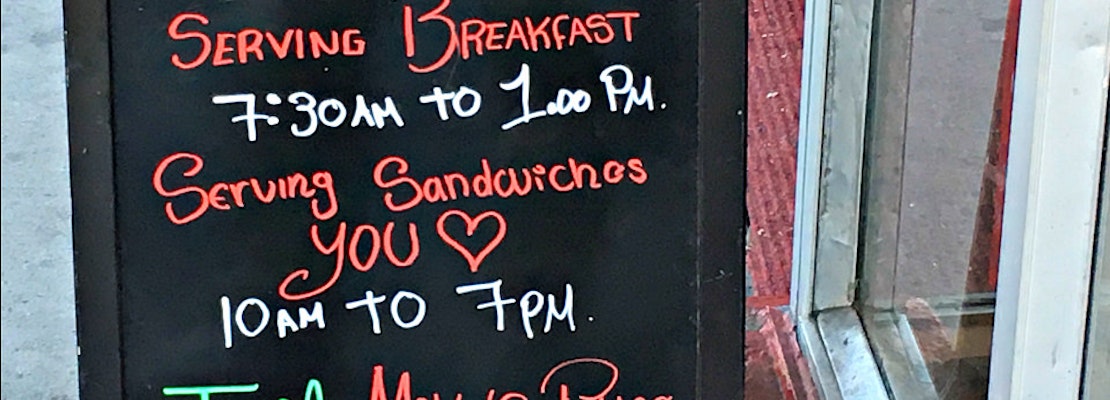 SERVING BREAKFAST
7:30AM TO 1.00 PM.
Serving Sandwiches
YOU ♡
10AM TO 7PM.